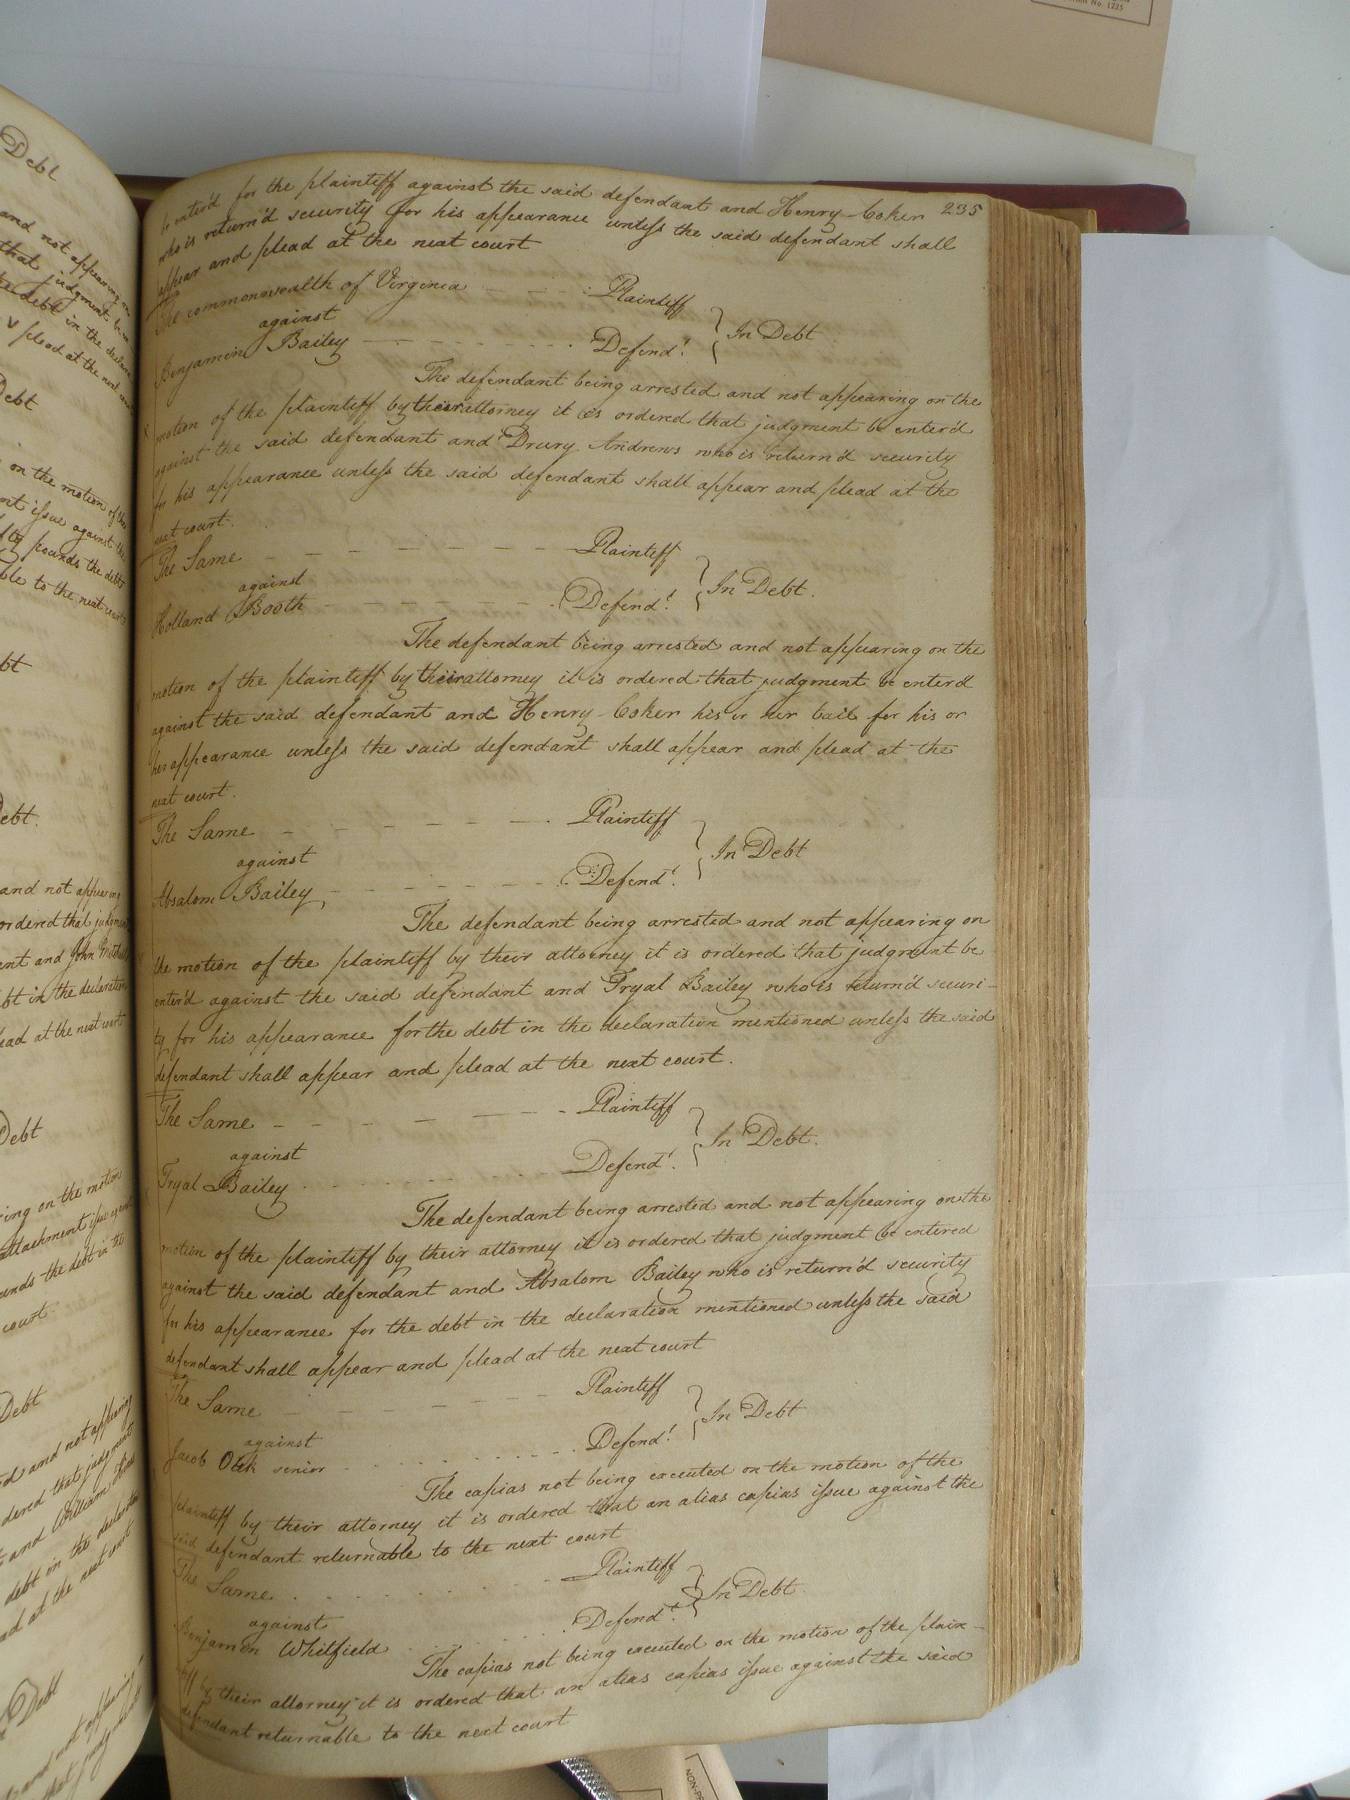 Debt
and not appearing on
that judgment be en
the debt in the declara
plead at the next court
Debt
on the motion of the
nt issue against the
fty pounds the debt
ble to the next court
bt
Debt.
and not appearing
ordered that judgment
ent and John
bt in the declaration
ead at the next court
Debt
ring on the motion
attachment issue against
unds the debt in the
court
Debt
ed and not appearing
dered that judgment
t and William
debt in the declaration
ad at the next court
Debt
and not appearing
that judgment
235
be enter'd for the plaintiff against the said defendant and Henry Coker
who is return'd security for his appearance unless the said defendant shall
appear and plead at the next court
The commonwealth of Virginia - - - - Plaintiff
against } In Debt
Benjamin Bailey - - - - - - Defend.t
The defendant being arrested and not appearing on the
motion of the plaintiff by their attorney it is ordered that judgment be enter'd
against the said defendant and Drury Andrews who is return'd security
for his appearance unless the said defendant shall appear and plead at the
next court.
The Same - - - - - - - Plaintiff
against } In Debt.
Holland Booth - - - - - - - Defend.t
The defendant being arrested and not appearing on the
motion of the plaintiff by their attorney it is ordered that judgment be enter'd
against the said defendant and Henry Coker his or her bail for his or
her appearance unless the said defendant shall appear and plead at the
next court.
The Same - - - - - - . Plaintiff
against } In Debt
Absalom Bailey, - - - - - - Defend.t
The defendant being arrested and not appearing on
the motion of the plaintiff by their attorney it is ordered that judgment be
enter'd against the said defendant and Tryal Bailey who is return'd securi-
ty for his appearance for the debt in the declaration mentioned unless the said
defendant shall appear and plead at the next court.
The Same - - - - - - Plaintiff
against } In Debt.
Tryal Bailey . . . . . . . Defend.t
The defendant being arrested and not appearing on the
motion of the plaintiff by their attorney it is ordered that judgment be entered
against the said defendant and Absalom Bailey who is return'd security
for his appearance for the debt in the declaration mentioned unless the said
defendant shall appear and plead at the next court
The Same - - - - - - Plaintiff
against } In Debt
Jacob senior . . . . . . . . Defend.t
The capias not being executed on the motion of the
plaintiff by their attorney it is ordered that an alias capias issue against the
said defendant returnable to the next court
The Same . . . . . . . . Plaintiff
against } In Debt
Benjamin Whitfield . . . . . . . Defend.t
The capias not being executed on the motion of the plain-
tiff by their attorney it is ordered that an alias capias issue against the said
defendant returnable to the next court